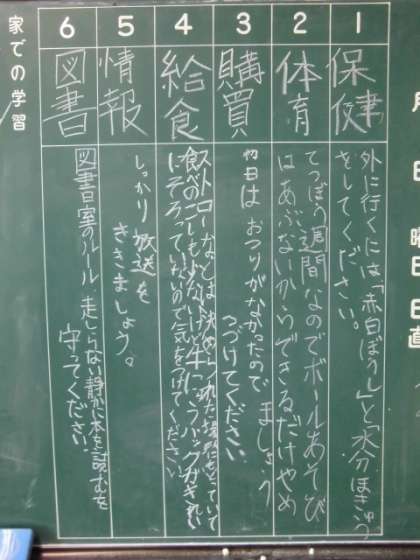 月
日
曜日
日直
1
保健
外に行くには「赤白ぼうし」と「水分ほきゅう」
をしてください。
2
体育
てつぼう週間なのでボールあそび
はあぶないからできるだけやめ
ましょう
3
購買
昨日はおつりがなかったので
つづけてください
4
給食
ストローなどは決められた場所にもどっていて
食べのこしも少ないけど牛にうパックがきれい
にそろっていないので気をつけてください
5
情報
しっかり放送を
ききましょう。
6
図書
図書室のルール 走しらない静かに本を読むを
守ってください。
家での学習